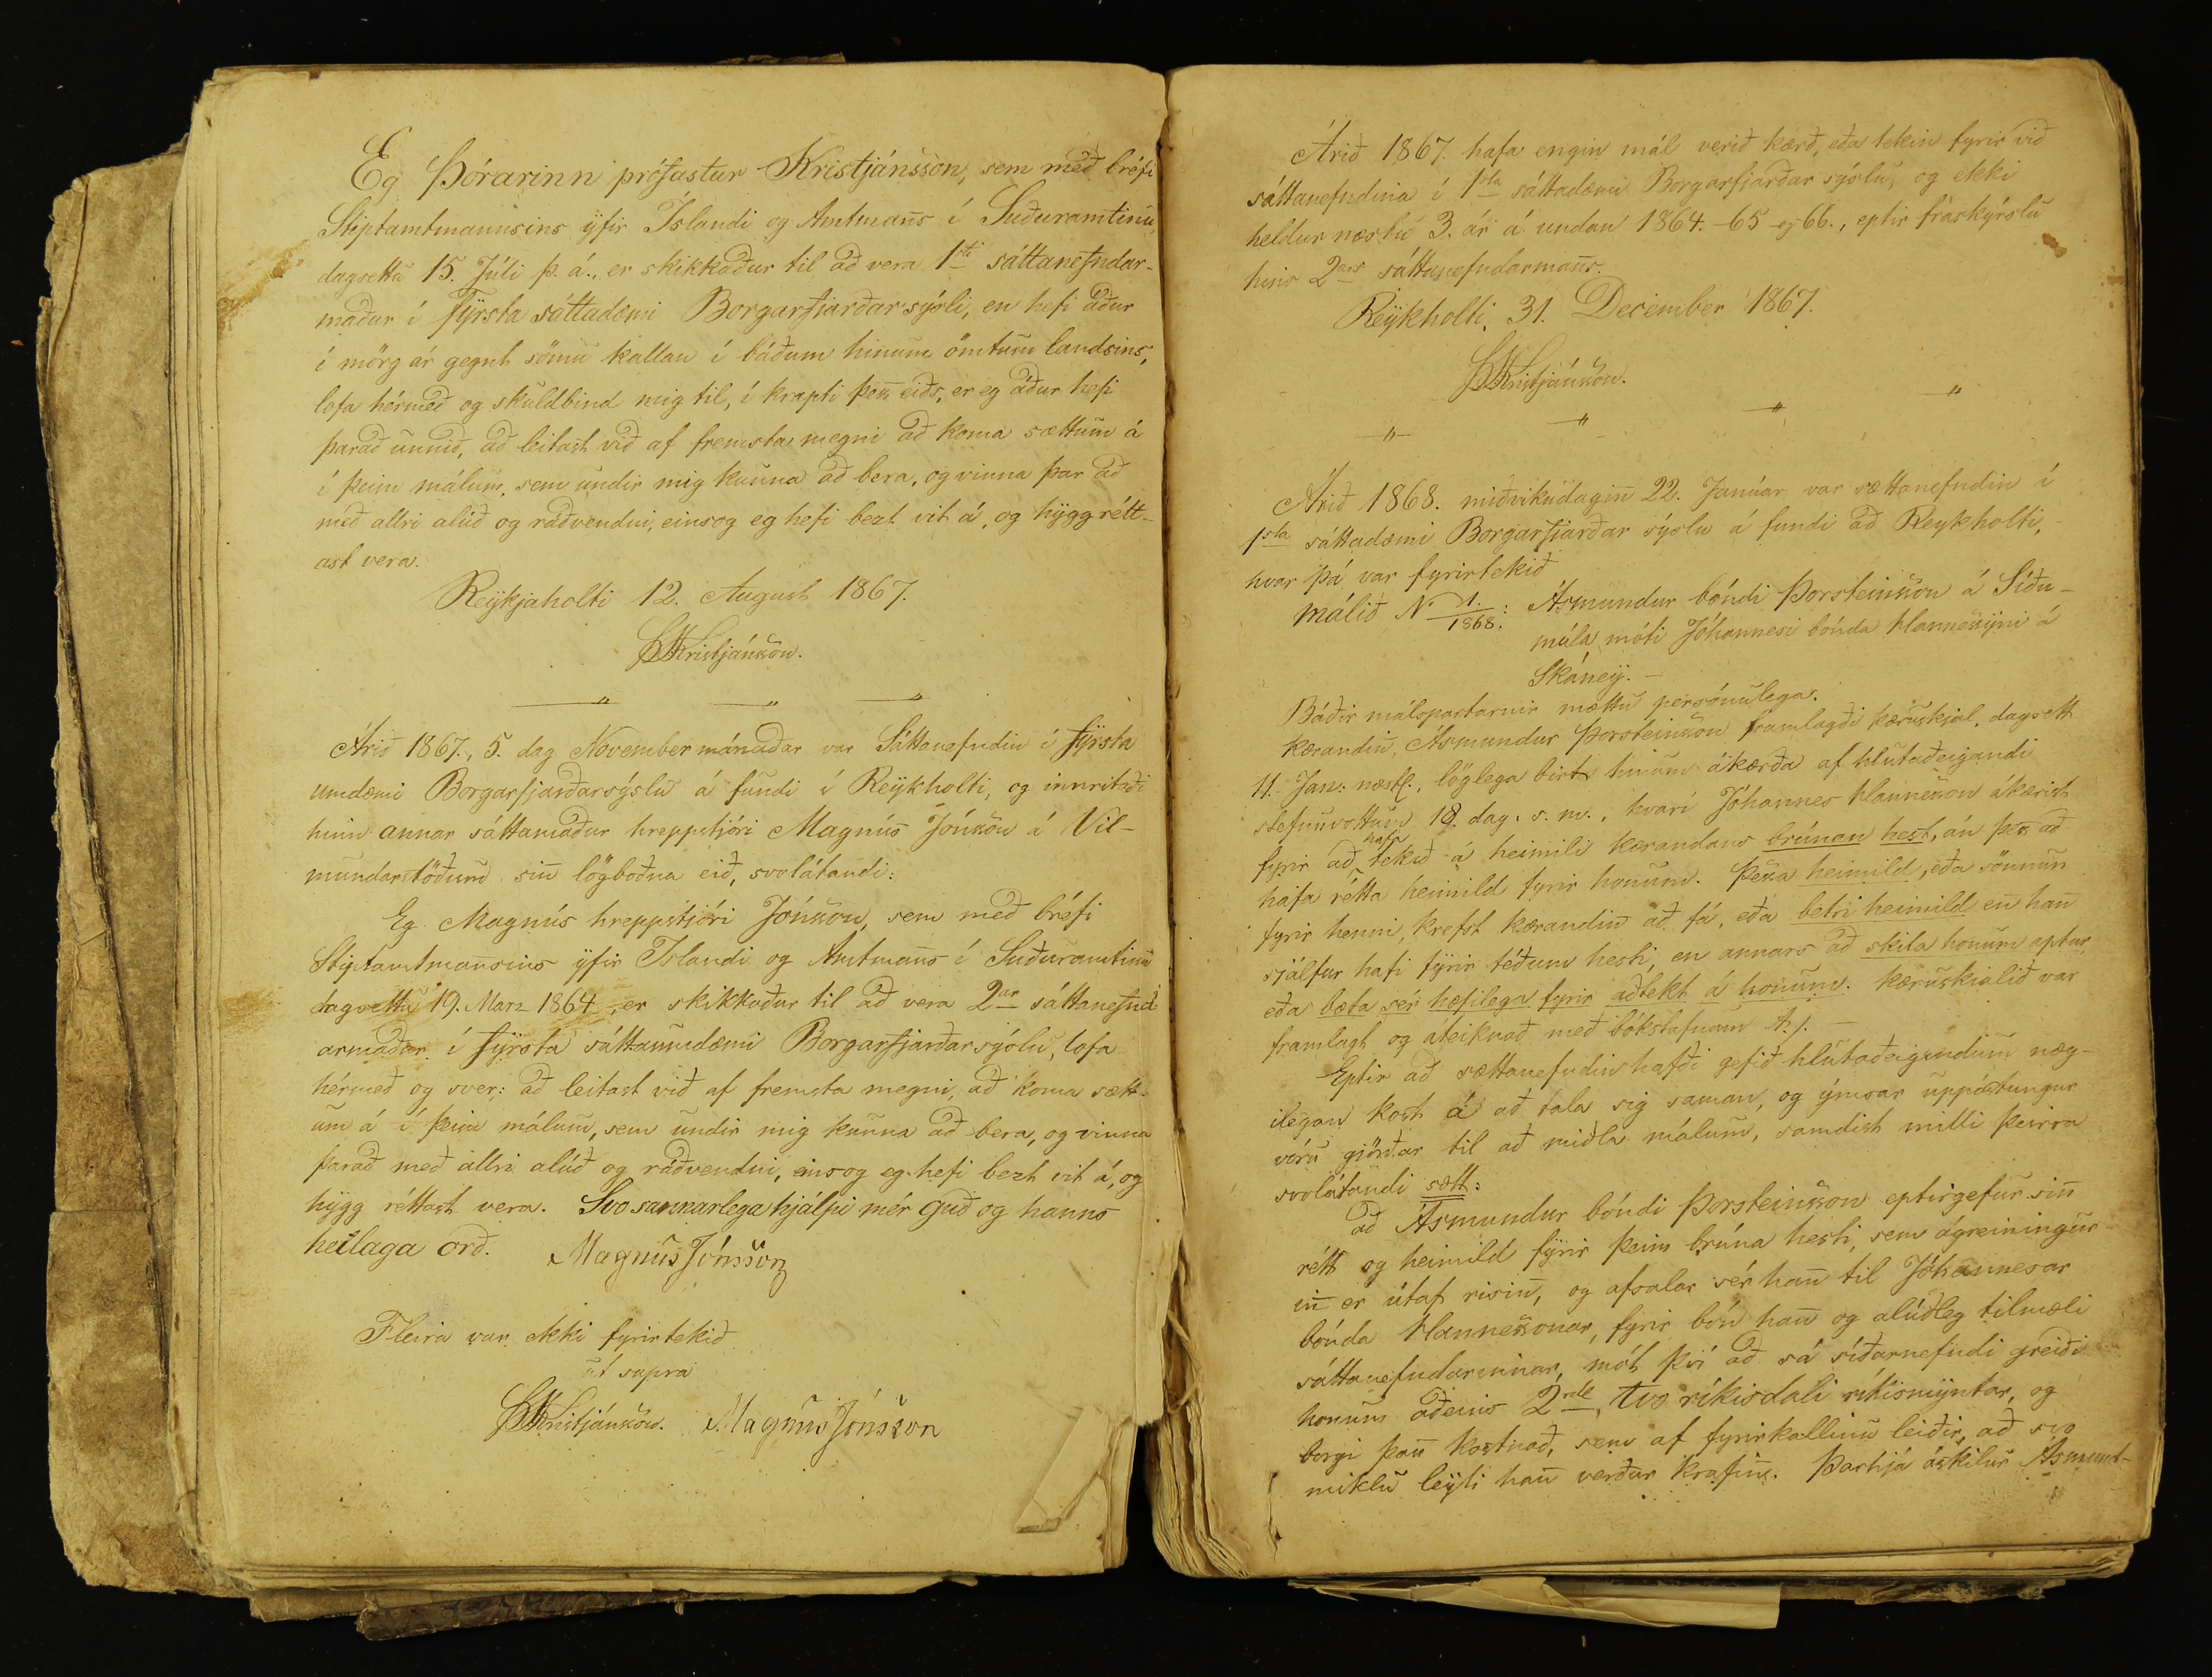 Eg Þórarinn prófastur Kristjánsson, sem með bréfi
Stiptamtmannsins ÿfir Íslandi og Amtmans̄ í Suðuramtinu,
dagsettu 15. Júli þ. á., er skikkaður til að vera 1sti sáttanefndar-
maður í fÿrsta sáttadæmi Borgarfjarðarsýsli, en hefi áður
í mörg ár gegnt sömu kallan í báðum hinum ömtum landsins,
lofa hérmeð og skuldbind mig til, í krapti þess eiðs, er eg áður hefi
þarað unnið, að leitast við af fremsta megni að koma sættum á
í þeim málum, sem undir mig kunna að bera, og vinna þar að
með allri alúð og ráðvendni, einsog eg hefi bezt vit á, og hÿgg rétt-
ast vera.
Reÿkjaholti 12. August 1867.
ÞKristjánsson.
Árið 1867., 5. dag November mánaðar var Sáttanefndin í fÿrsta
umdæmi Borgarfjarðarsÿslu á fundi í Reÿkholti, og innritaði
hinn annar sáttamaður hreppstjóri Magnús Jónsson á Vil-
mundarstöðum sin̄ lögboðna eið, svolátandi:
Eg Magnús hreppstjóri Jónsson, sem með bréfi
Stiptamtmansins ÿfir Islandi og Amtmans̄ í Suðuramtinu
dagsettu 19. Marz 1864, er skikkaður til að vera 2ar sáttanefnd
armaður í fÿrsta sáttaumdæmi Borgarfjarðarsýslu, lofa
hérmeð og sver: að leitast við af fremsta megni, að koma sætt-
um á í þeim málum, sem undir mig kunna að bera, og vinna
þarað með allri alúð og ráðvendni, einsog eg hefi bezt vit á, og
hÿgg réttast vera. Svo sannarlega hjálpi mér Guð og hanns
heilaga orð. Magnús Jónsson
Fleira var ekki fyrirtekið
ut supra
ÞKristjánsson. Magnús Jónsson
Árið 1867. hafa engin mál verið kærð, eða tekin fyrir við
sáttanefndina í 1sta sáttadæmi Borgarfjarðar sýslu, og ekki
heldur næstu 3. ár á undan 1864.-65 og 66., eptir fráskýrslu
hins 2ars sáttanefndarmans̄.
Reÿkholti, 31. December 1867.
ÞKristjánsson.
Árið 1868. miðvikudagin̄ 22. Janúar var sættanefndin í
1sta sáttadæmi Borgarfjarðar sýslu á fundi að Reykholti,
hvar þá var fyrirtekið
málið No 1./1868.: Ásmundur bóndi Þorsteinsson á Síðu-
múla móti Jóhannesi bónda Hannessÿni á
Skáneÿ. -
Báðir málspartarnir mættu persónulega.
kærandin̄, Asmundur Þorsteinsson framlagði kæruskjal, dagsett
11. Jan: næstl., löglega birt hinum ákærða af hlutaðeigandi
stefnuvottum 18. dag. s. m., hvarí Jóhannes Hannesson ákærist
fyrir að hafa tekið á heimili kærandans brúnan hest, án þess að
hafa rétta heimild fyrir honum. Þessa heimild, eða sönnun
fyrir henni, krefst kærandin̄ að fá, eða betri heimild en̄ han
sjálfur hafi fÿrir téðum hesti, en annars að skila honum aptur,
eða bæta sér hæfilega fyrir aðtekt á honum. Kæruskjalið var
framlagt og áteiknað með bókstafnum A.). -
Eptir að sættanefndin hafði gefið hlutaðeigendum næg-
ilegan kost á að tala sig saman, og ýmsar uppástungur
vóru gjörðar til að miðla málum, samdist milli þeirra
svolátandi sætt:
að Ásmundur bóndi Þorsteinsson eptirgefur sin̄
rétt og heimild fÿrir þeim brúna hesti, sem ágreiningur
in̄ er útaf risin̄, og afsalar sér han̄ til Jóhannesar
bónda Hannessonar, fyrir bón han̄ og alúðleg tilmæli
sáttanefndarinnar, mót því að sá síðarnefndi greiði
honum aðeins 2rde, tvo ríkisdali ríkismÿntar, og
borgi þan̄ kostnað, sem af fyrirkallinu leiðir, að svo
miklu leÿti han̄ verður krafin̄. Þarhjá áskilur Ásmund-